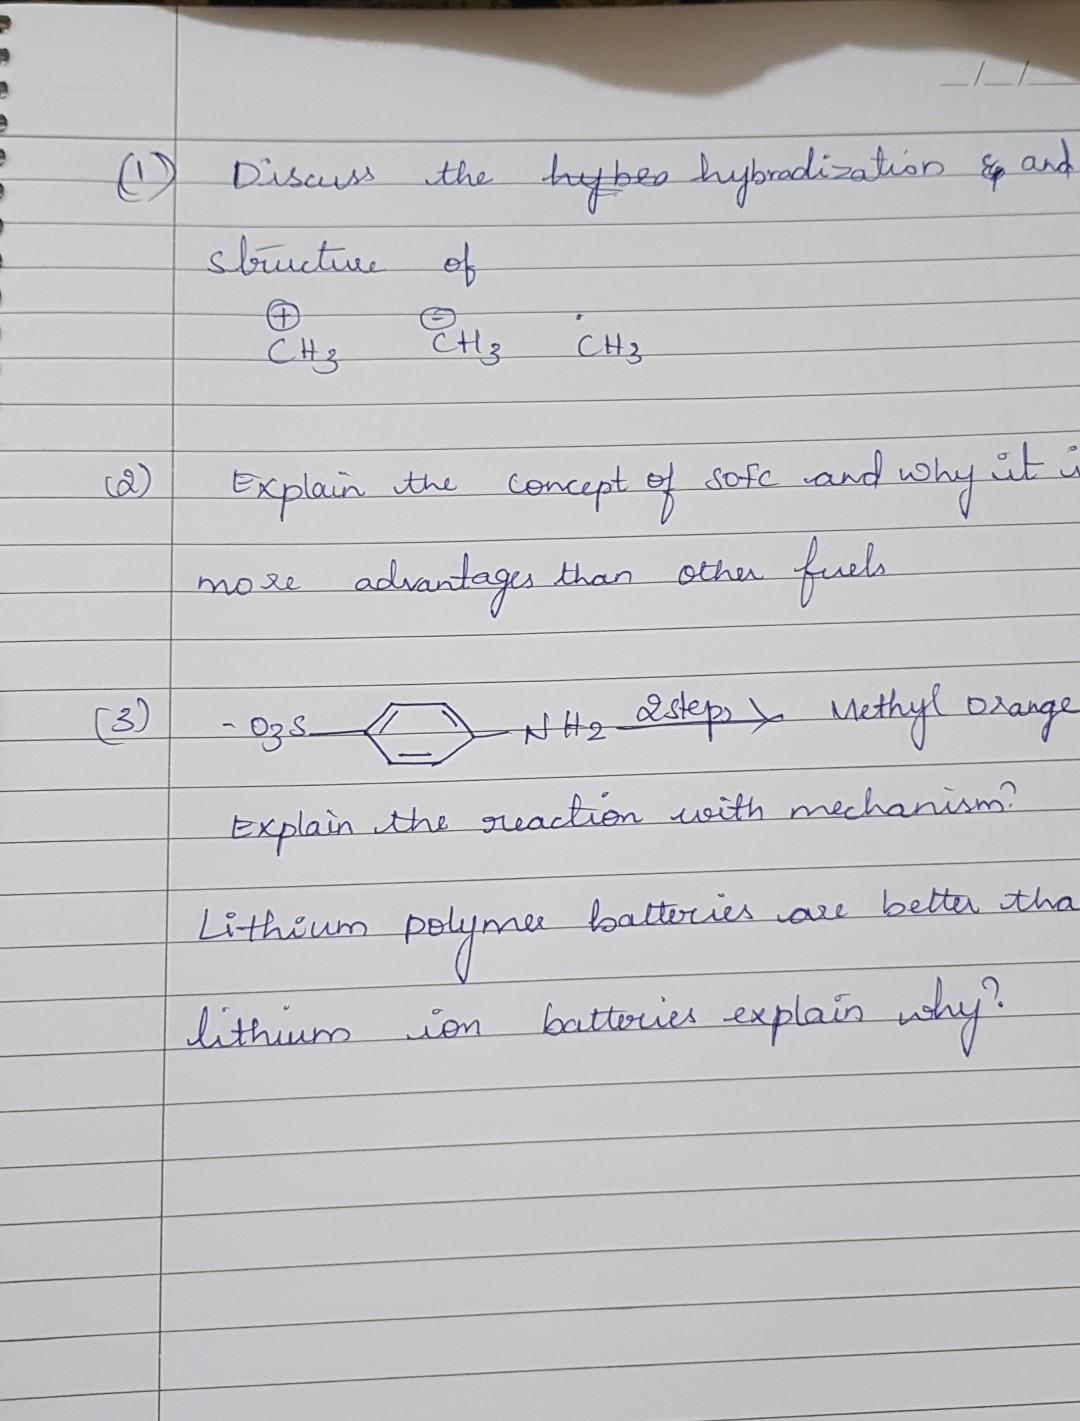 _/_/_
(1) Discuss the hybro hybradization & and
structure of
⊕ ⊖ .
CH3 CH3 CH3
(2) Explain the concept of SOFC and why it i
more advantages than other fuels
(3) - O3S NH2 2steps Methyl Orange
Explain the reaction with mechanism?
Lithium polymer batteries are better tha
lithium ion batteries explain why?